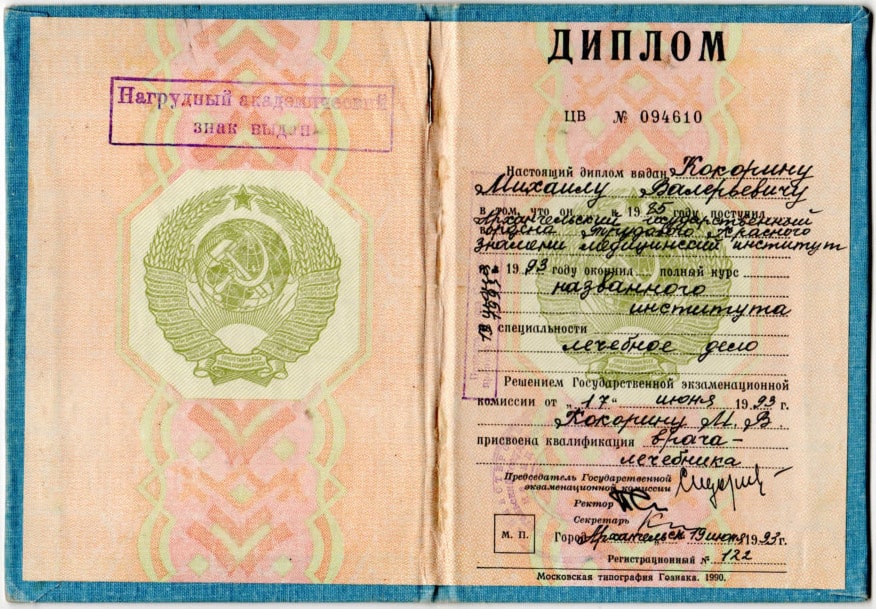 Нагрудный академический
знак выдан
ДИПЛОМ
ЦВ № 094610
Настоящий диплом выдан Кокорину
Михаилу Валерьевичу
в том, что он в 1985 году поступил
в Архангельский государственный
ордена Трудового Красного
знамени медицинский институт
и в 1993 году окончил полный курс
названного
института
по специальности
лечебное дело
Решением Государственной экзаменационной
комиссии от „17“ июня 1993 г.
Кокорину М. В.
присвоена квалификация врача-
лечебника
Председатель Государственной
экзаменационной комиссии
Ректор
Секретарь
М. П.
Город Архангельск 19 июня 1993 г.
Регистрационный № 122
Московская типография Гознака. 1990.